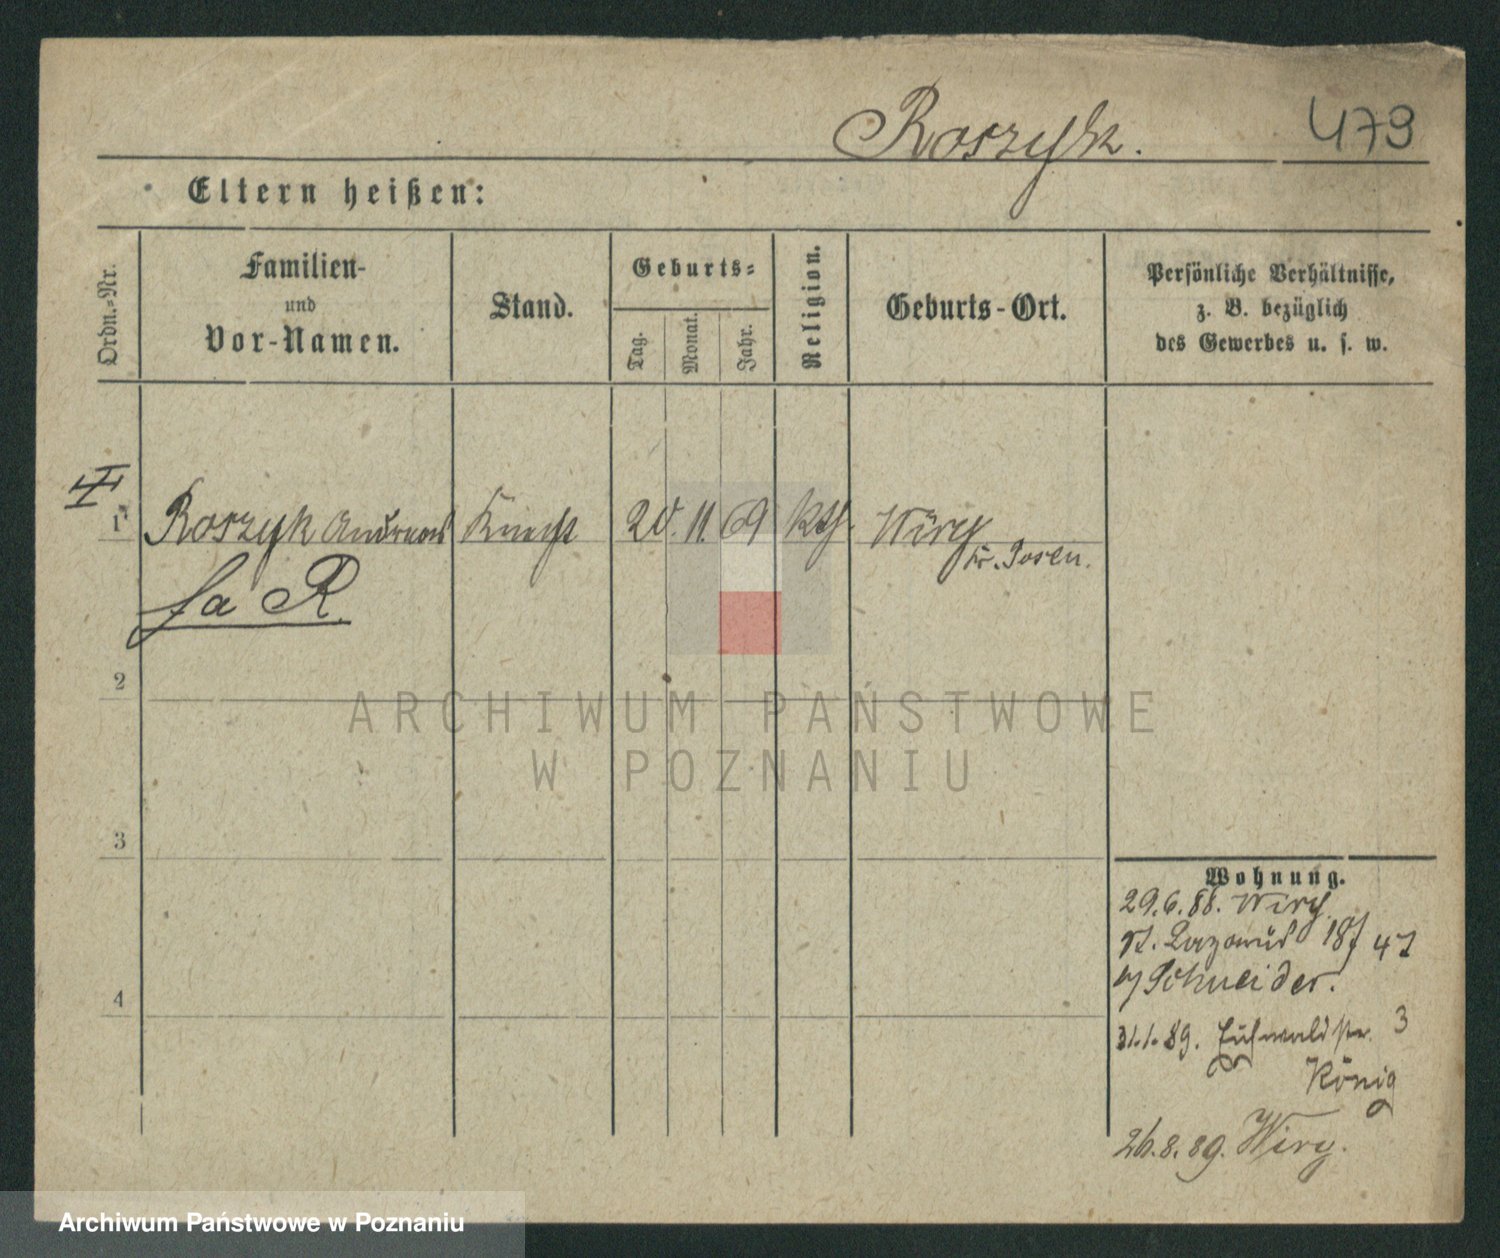 Roszyk. 479
Eltern heißen:
Ordn.-Nr.
Familien-
und
Vor-Namen.
Stand.
Geburts-
Tag.
Monat.
Jahr.
Religion.
Geburts-Ort.
Persönliche Verhältnisse,
z. B. bezüglich
des Gewerbes u. s. w.
1 Roszyk Andreas Knecht 20. 11. 69 kth. Wiry
Kr. Posen.
fa R.
2
ARCHIWUM PAŃSTWOWE
W POZNANIU
3
4
Wohnung.
29.6.88. Wiry
St. Lazarus
Schneider.
31.1.89. 3
König
26.8.89. Wiry.
Archiwum Państwowe w Poznaniu